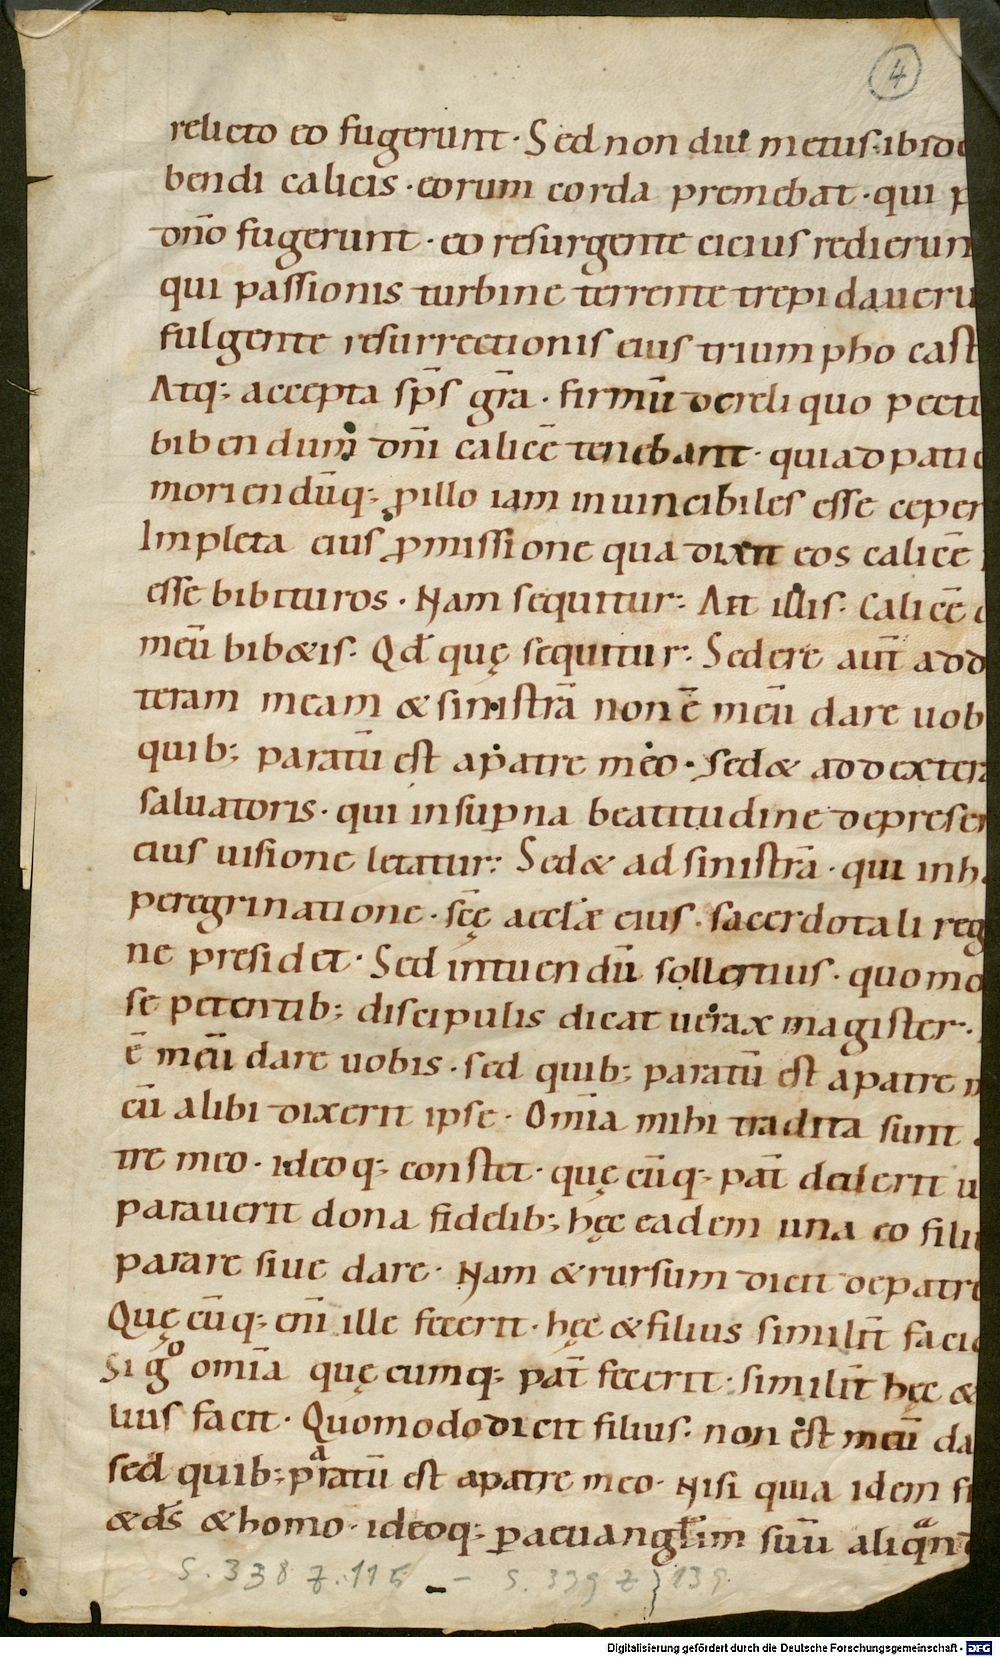 4
relicto eo fugerunt · Sed non diu metus · ibide
bendi calicis · eorum corda premebat · qui p
dno̅ fugerunt · eo resurgente cicius redierun
qui passionis turbine terrente trepidaueru
fulgente resurrectionis eius triumpho cast
Atq; accepta sp̅s gr̅a · firmu̅ de reliquo pectu
bibendum dn̅i calice̅ tenebant · quia ad pati
moriendu̅q; ꝓ illo iam inuincibiles esse ceper
Impleta eius ꝓmissione qua dixit eos calice̅
esse bibituros · Nam sequitur: Ait illis · Calice̅
meu̅ bib&is · Qd̅ quę sequitur · Sedere aut̅ ad d
teram meam & sinistra̅ non e̅ meu̅ dare uob
quib; paratu̅ est a patre meo · Sed& ad dexter
saluatoris · qui in suꝑna beatitudine de prese
eius uisione letatur: Sed& ad sinistra̅ · qui in h
peregrinatione · sc̅ę accl̅æ eius · sacerdotali reg
ne presidet · Sed intuendu̅ sollertius · quomo
se petentib; discipulis dicat uerax magister ·
e̅ meu̅ dare uobis · sed quib; paratu̅ est a patre m
cu̅ alibi dixerit ipse · Om̅ia mihi tradita sunt a
tre meo · ideoq; constet · quę cu̅q; pat̅ dederit u
parauerit dona fidelib; hęc eadem una eo fili
parare siue dare · Nam & rursum dicit de patre
Quę cu̅q; eni̅ ille fecerit · hęc & filius simili̅t faci
Si gͦ om̅ia quę cumq; pat̅ fecerit · simili̅t hęc &
lius facit · Quomodo dicit filius · non est meu̅ da
sed quib; pᵃratu̅ est a patre meo · Nisi quia idem fi
& d̅s & homo · ideoq; ꝑ aeuangl̅ium suu̅ aliqᵃn
S. 338 Z. 115 – S. 339 Z 139
Digitalisierung gefördert durch die Deutsche Forschungsgemeinschaft - DFG